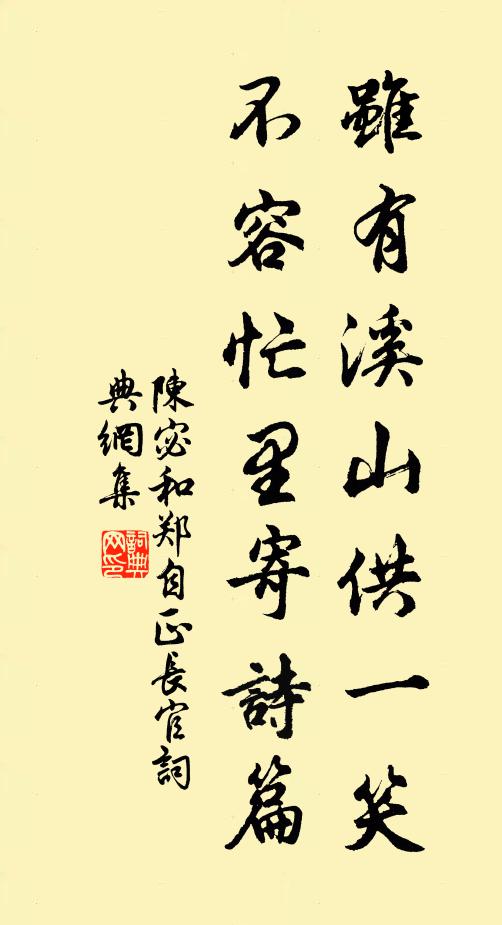 雖有溪山供一笑
不容忙里寄詩篇
陳宓和郑自正長官詞
典網集
詞典网印